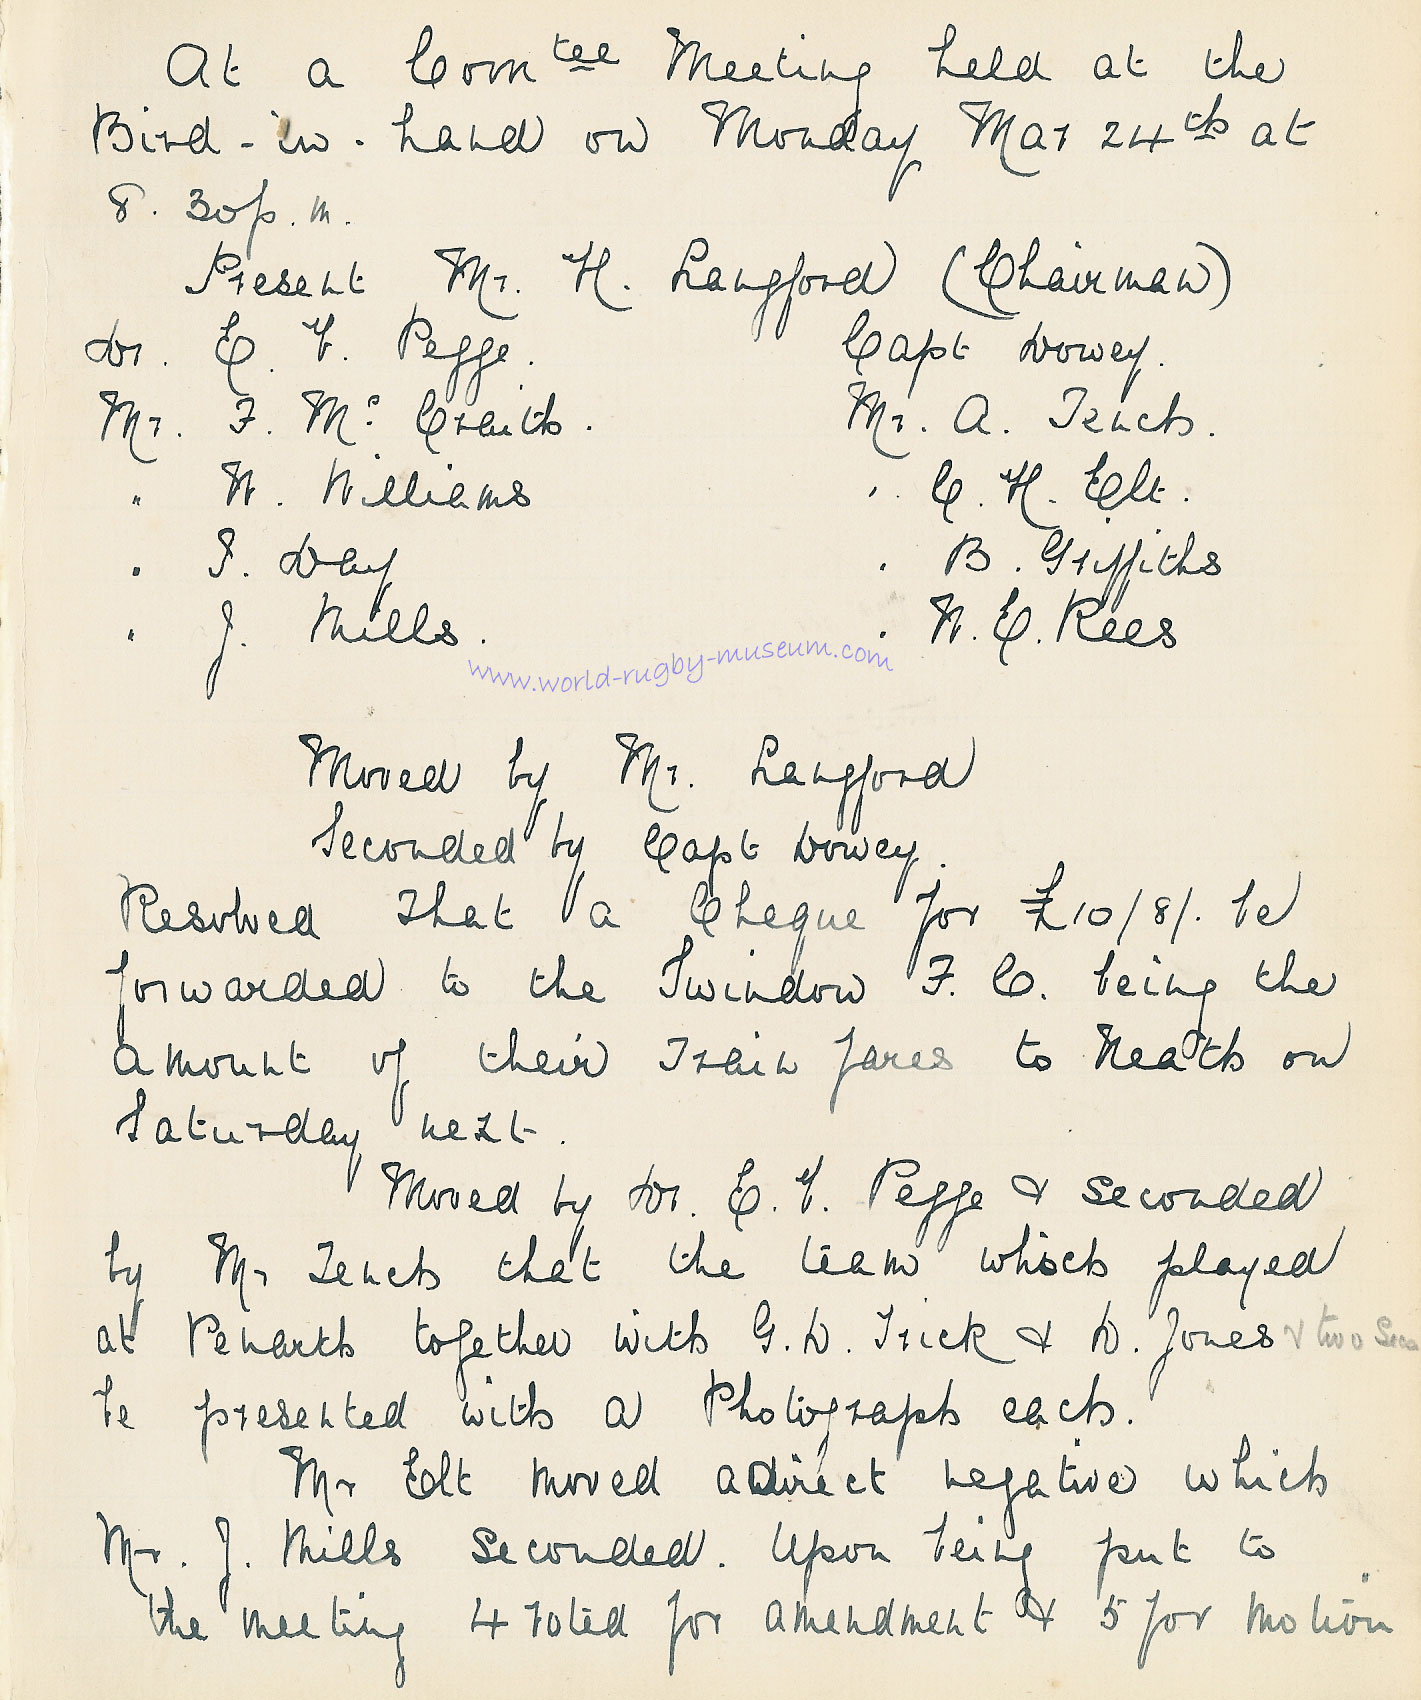 At a Comtee Meeting held at the
Bird-in-hand on Monday Mar 24th at
8.30 p.m.
Present Mr. H. Langford (Chairman)
Dr. E. V. Pegge. Capt Dowey.
Mr. F. Mc Craith. Mr. A. Tench.
" W. Williams " C. H. Elt.
" S. Day " B. Griffiths
" J. Mills. " W. E. Rees
www.world-rugby-museum.com
Moved by Mr. Langford
Seconded by Capt Dowey.
Resolved that a Cheque for £10/8/. be
forwarded to the Swindow F. C. being the
amount of their Train fares to Neath on
Saturday next.
Moved by Dr. E. V. Pegge & seconded
by Mr Tench that the team which played
at Penarth together with G. D. Trick & D. Jones & two Secs
be presented with a Photograph each.
Mr Elt moved a direct negative which
Mr. J. Mills seconded. Upon being put to
the meeting 4 voted for amendment & 5 for motion